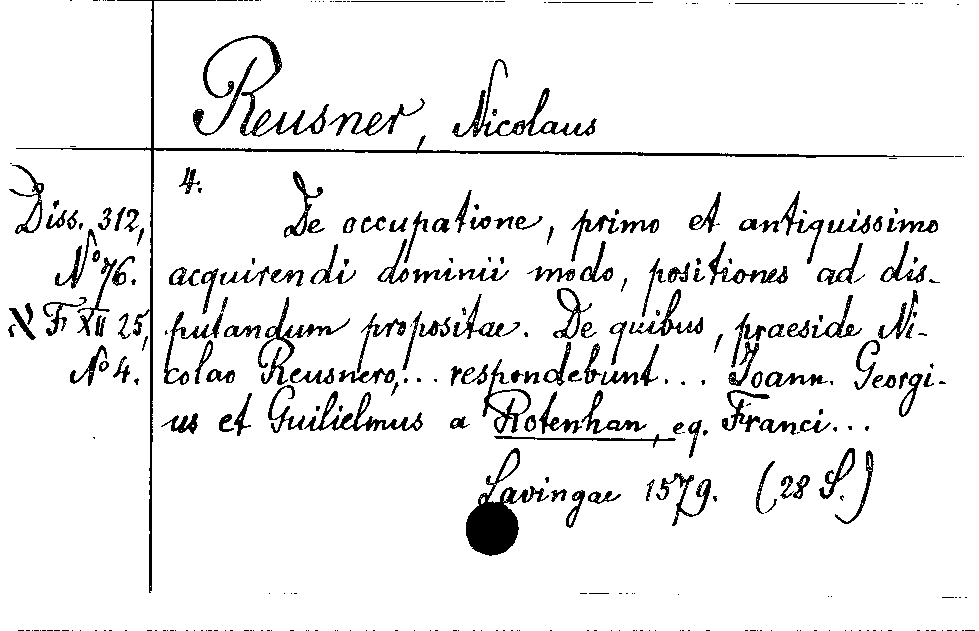 Reusner, Nicolaus
4.
Diss. 312,
No 76.
F XII 25,
No 4.
De occupatione, primo et antiquissimo
acquirendi dominii modo, positiones ad dis-
putandum propositae. De quibus, praeside Ni-
colao Reusnero,... respondebunt... Joann. Georgi-
us et Guilielmus a Rotenhan, eq. Franci...
Lavingae 1579. (28 S.)